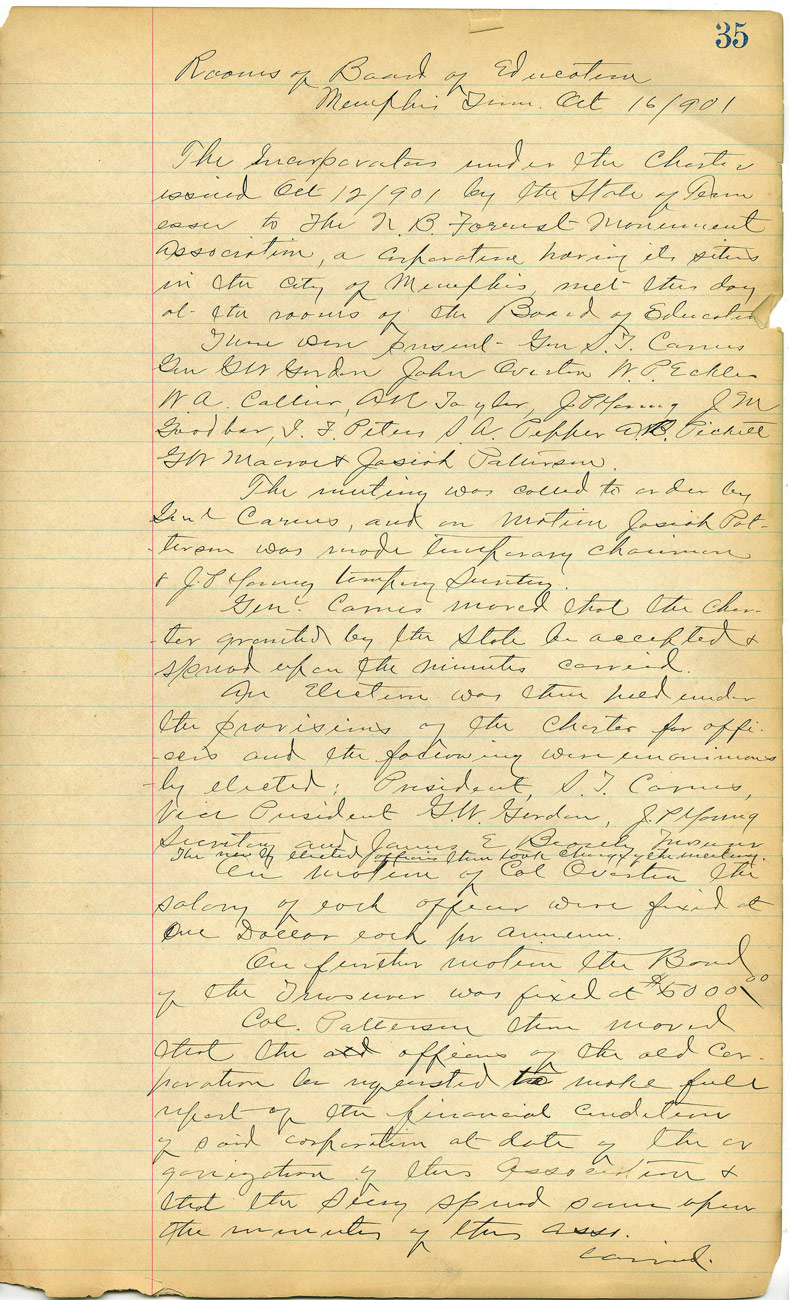 35
Rooms of Board of Education
Memphis Tenn. Oct 16/901
The Incorporators under the Charter
issued Oct 12/901 by the State of Tenn
essee to The N. B. Forrest Monument
Association, a corporation having its situs
in the city of Memphis, met this day
at the rooms of the Board of Education
There were present Gen S. T. Carnes
Gen GW Gordon John Overton W. P. Eckles
W. A. Collier, A R Taylor, J. P Young J. M
Goodbar, I. F. Peters S. A. Pepper A. B. Pickett
GW Macrae & Josiah Patterson.
The meeting was called to order by
Genl Carnes, and on motion Josiah Pat-
-terson was made temporary chairman
& J. P Young tempry Secretry.
Genl. Carnes moved that the char-
-ter granted by the State be accepted &
spread upon the minutes carried.
An Election was then held under
the provisions of the Charter for offi-
-cers and the following were unanimous
-ly elected: President, S. T. Carnes,
Vice President G. W. Gordon, J. P Young
Secretary and James E Beasley Treasurer
The newly elected officers then took charge of the meeting.
On motion of Col Overton the
salary of each officer were fixed at
One Dollar each pr annum.
On further motion the Bond
of the Treasurer was fixed at $5000 00
Col. Patterson then moved
that the old officers of the old Cor-
poration be requested to make full
report of the financial condition
of said corporation at date of the or
ganization of this Association &
that the Secry spread same upon
the minutes of this Asso.
carried.